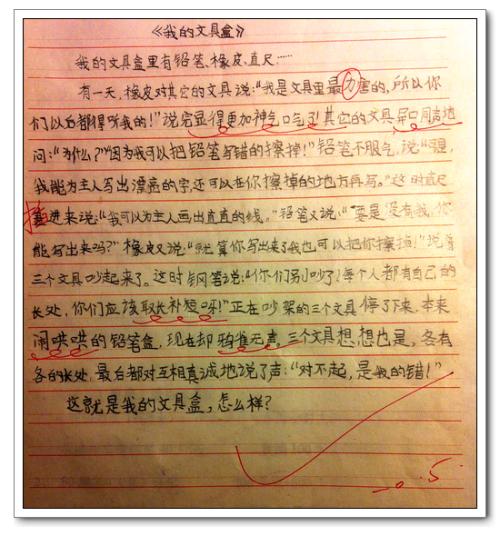 《我的文具盒》
我的文具盒里有铅笔、橡皮、直尺……
有一天，橡皮对其它的文具说：“我是文具里最力害的，所以你
们以后都得听我的！”说完显得更加神气口气了！其它的文具异口同声地
问：“为什么？”“因为我可以把铅笔写错的擦掉！”铅笔不服气，说“可是，
我能为主人写出漂亮的字，还可以在你擦掉的地方再写。”这时直尺
插进来说：“我可以为主人画出直直的线。”铅笔又说：“要是没有我，你
能写出来吗？”橡皮又说：“就算你写出来了我也可以把你擦掉！”说着
三个文具吵起来了。这时钢笔说：“你们别吵了！每个人都有自己的
长处，你们应该取长补短呀！”正在吵架的三个文具停了下来，本来
闹哄哄的铅笔盒，现在却鸦雀无声，三个文具想想也是，各有
各的长处，最后都对互相真诚地说了声：“对不起，是我的错！”
这就是我的文具盒，怎么样？